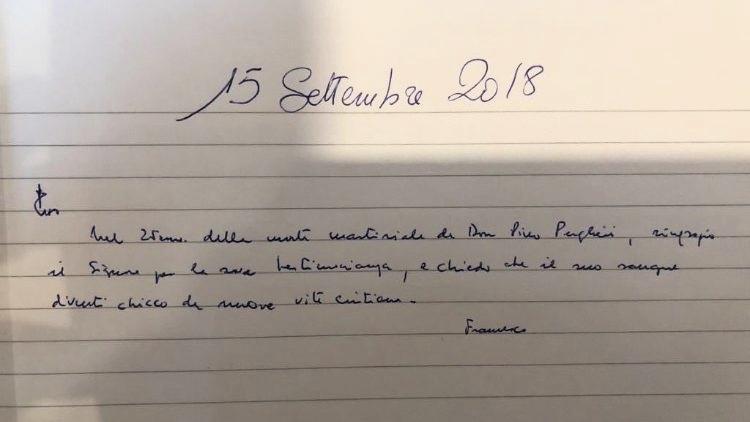 15 Settembre 2018
Nel 25mo. della morte martiriale di Don Pino Puglisi, ringrazio
il Signore per la sua testimonianza, e chiedo che il suo sangue
diventi chicco di nuove vite cristiane.
Francesco